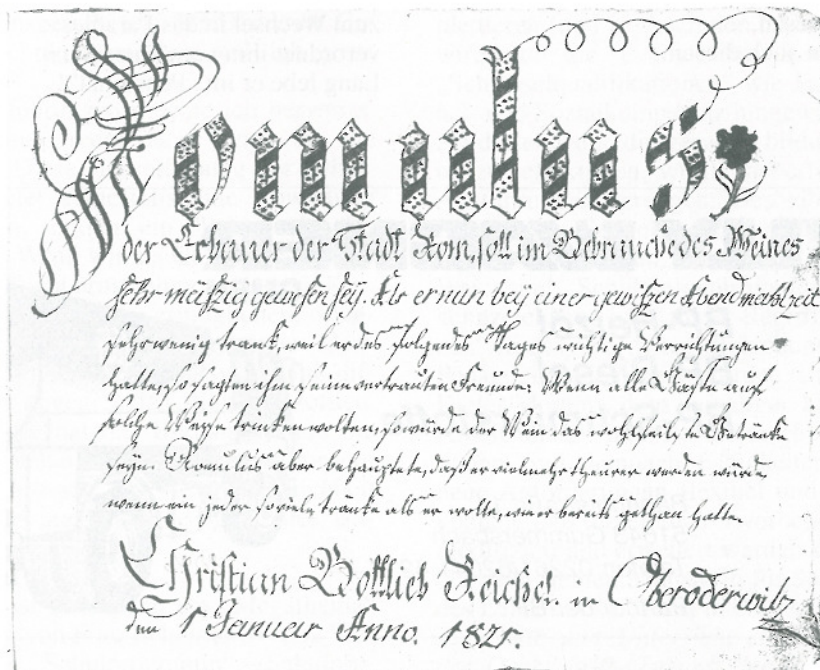 Romulus
der Erbauer der Stadt Rom, soll im Gebrauche des Weines
sehr mäßzig gewesen seÿ. Als er nun beÿ einer gewißzen Abendmahlzeit
sehr wenig trank, weil er des folgendes Tages wichtige Verrichtungen
hatte, so sagten ihm seine vertrauten Freunde: Wenn alle Gäste auf
solche Weise trinken wolten, so würde der Wein das wohlfeilste Getränke
seÿn. Romulus aber behauptete, daß er vielmehr theurer werden würde
wenn ein jeder so viel tränke als er wolte, wie er bereits gethan hatte.
Christian Gottlieb Reichel. in Oberoderwitz
den 1 Januar Anno. 1821.